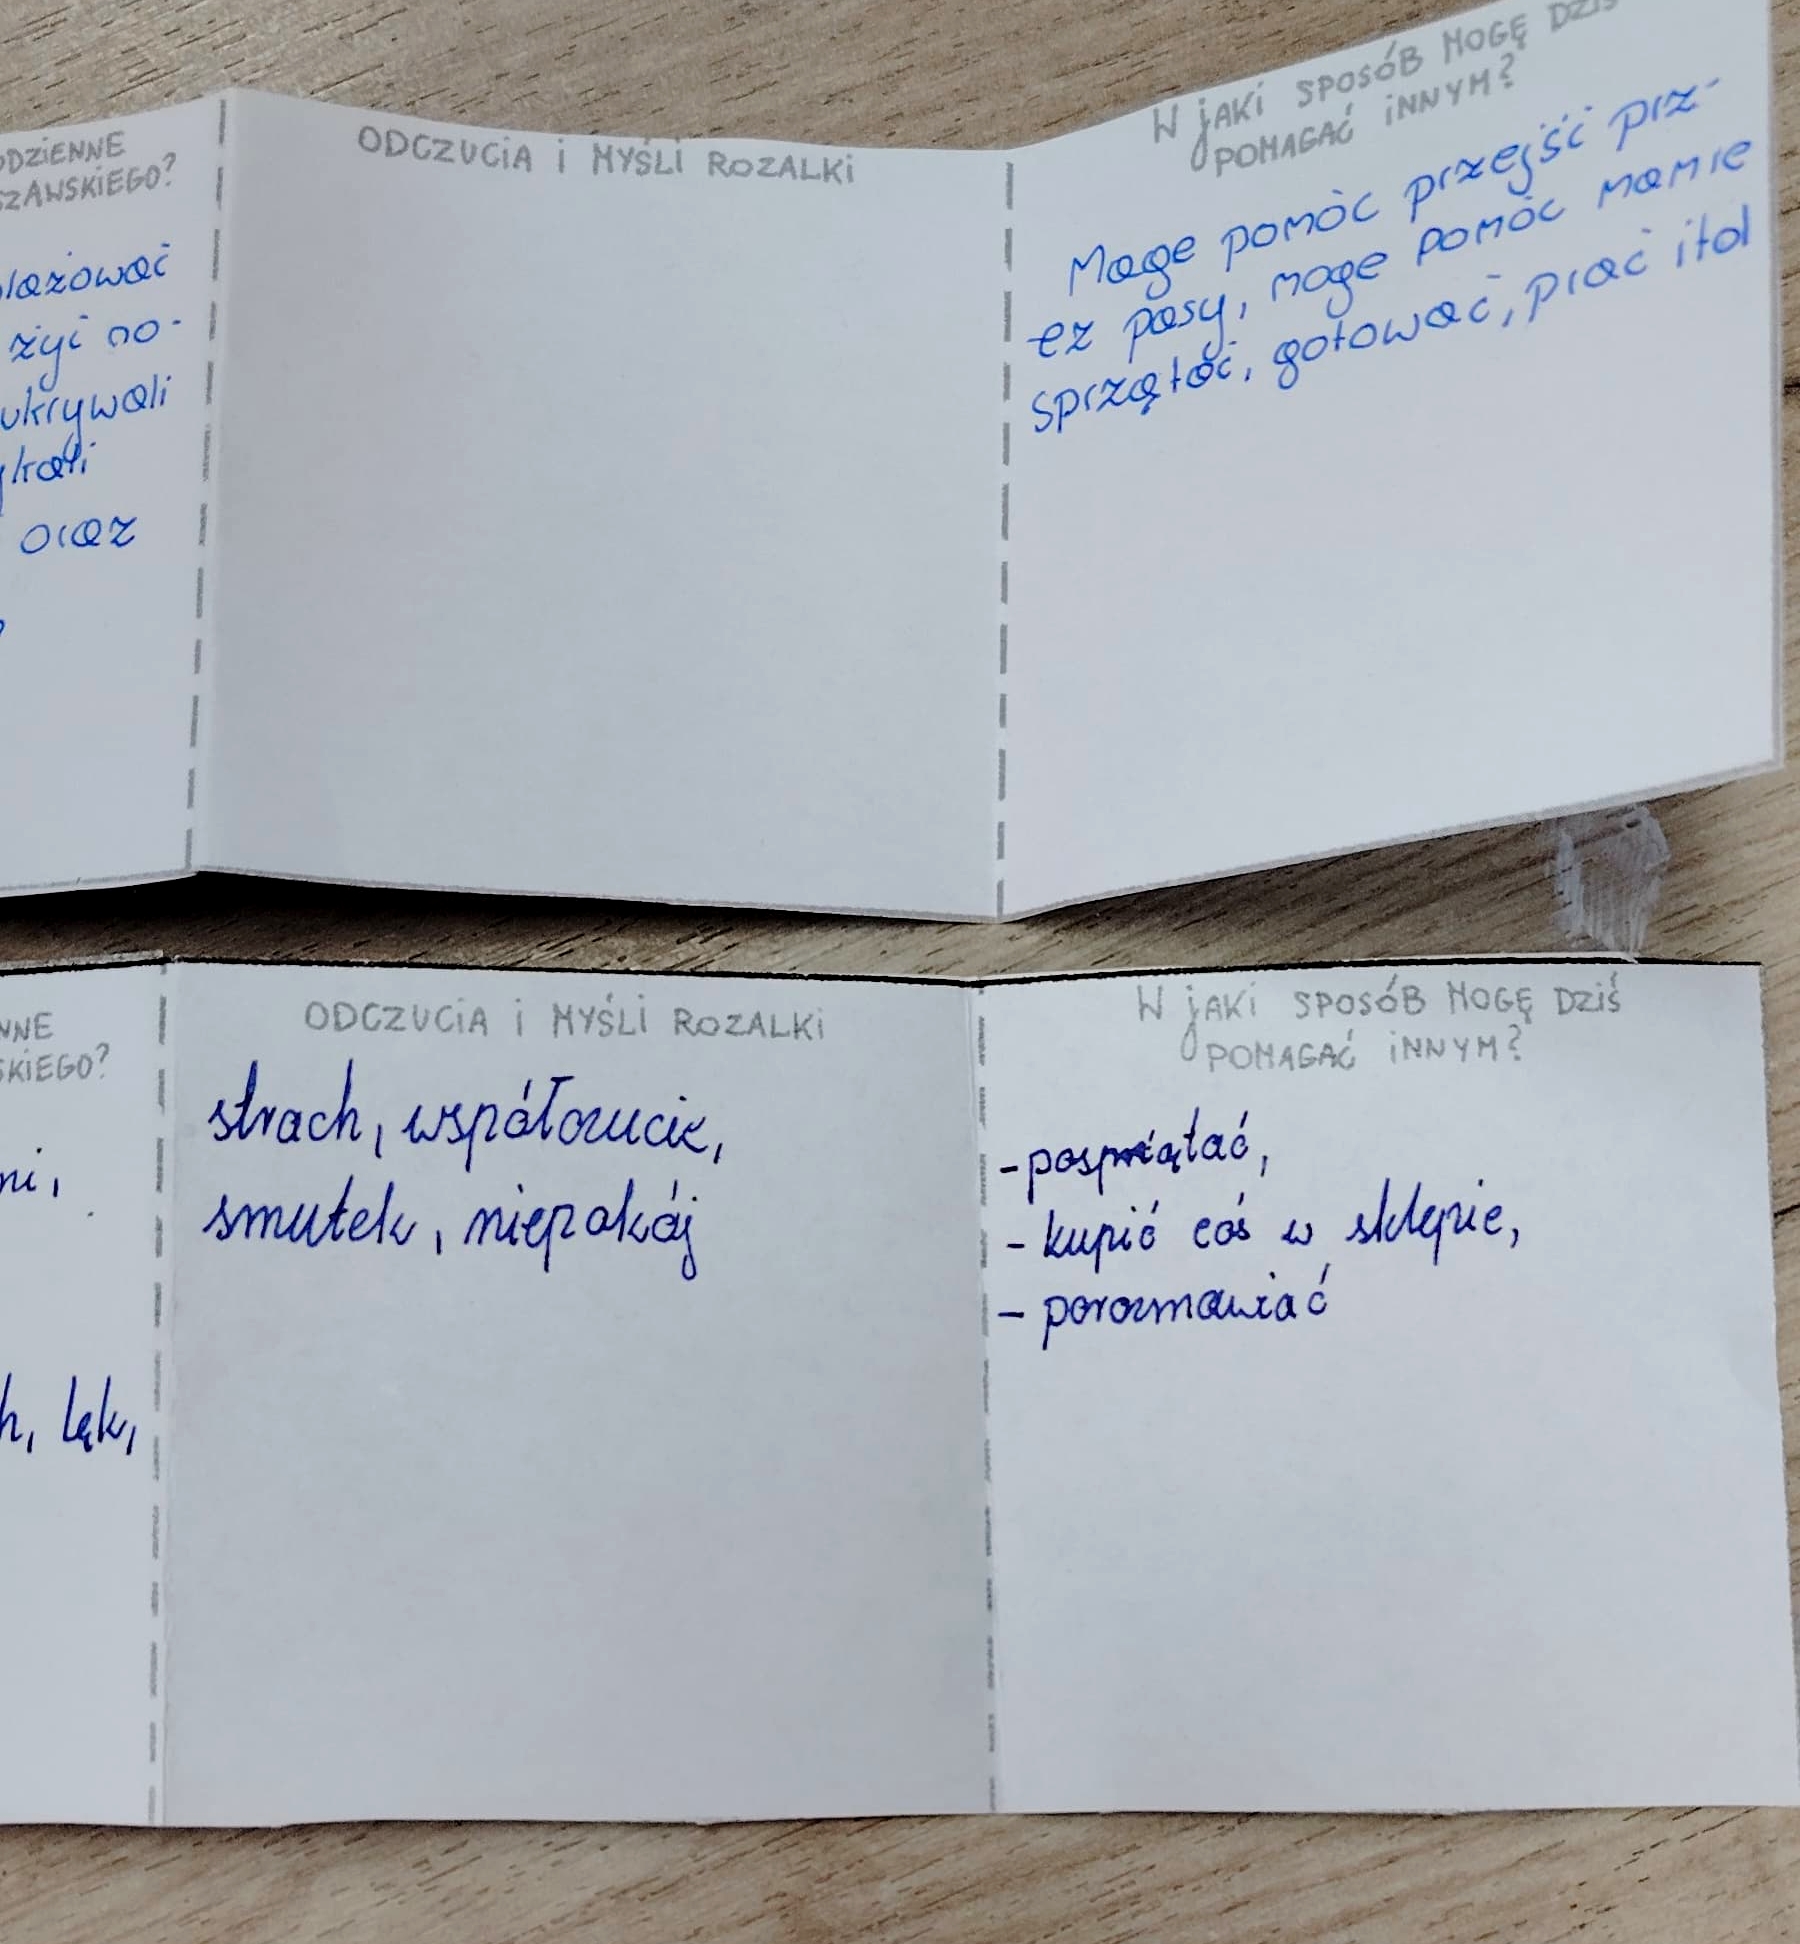 ODZIENNE
SZAWSKIEGO?
żyć no-
ukrywali
oraz
ODCZUCIA I MYŚLI ROZALKI
W JAKI SPOSÓB MOGĘ DZIŚ
POMAGAĆ INNYM?
Moge pomóc przejść prz-
ez pasy, moge pomóc mamie
sprzątać, gotować, prać itd
NNE
SKIEGO?
ni,
h, lęk,
ODCZUCIA I MYŚLI ROZALKI
strach, współczucie,
smutek, niepokój
W JAKI SPOSÓB MOGĘ DZIŚ
POMAGAĆ INNYM?
- posprzątać,
- kupić coś w sklepie,
- porozmawiać